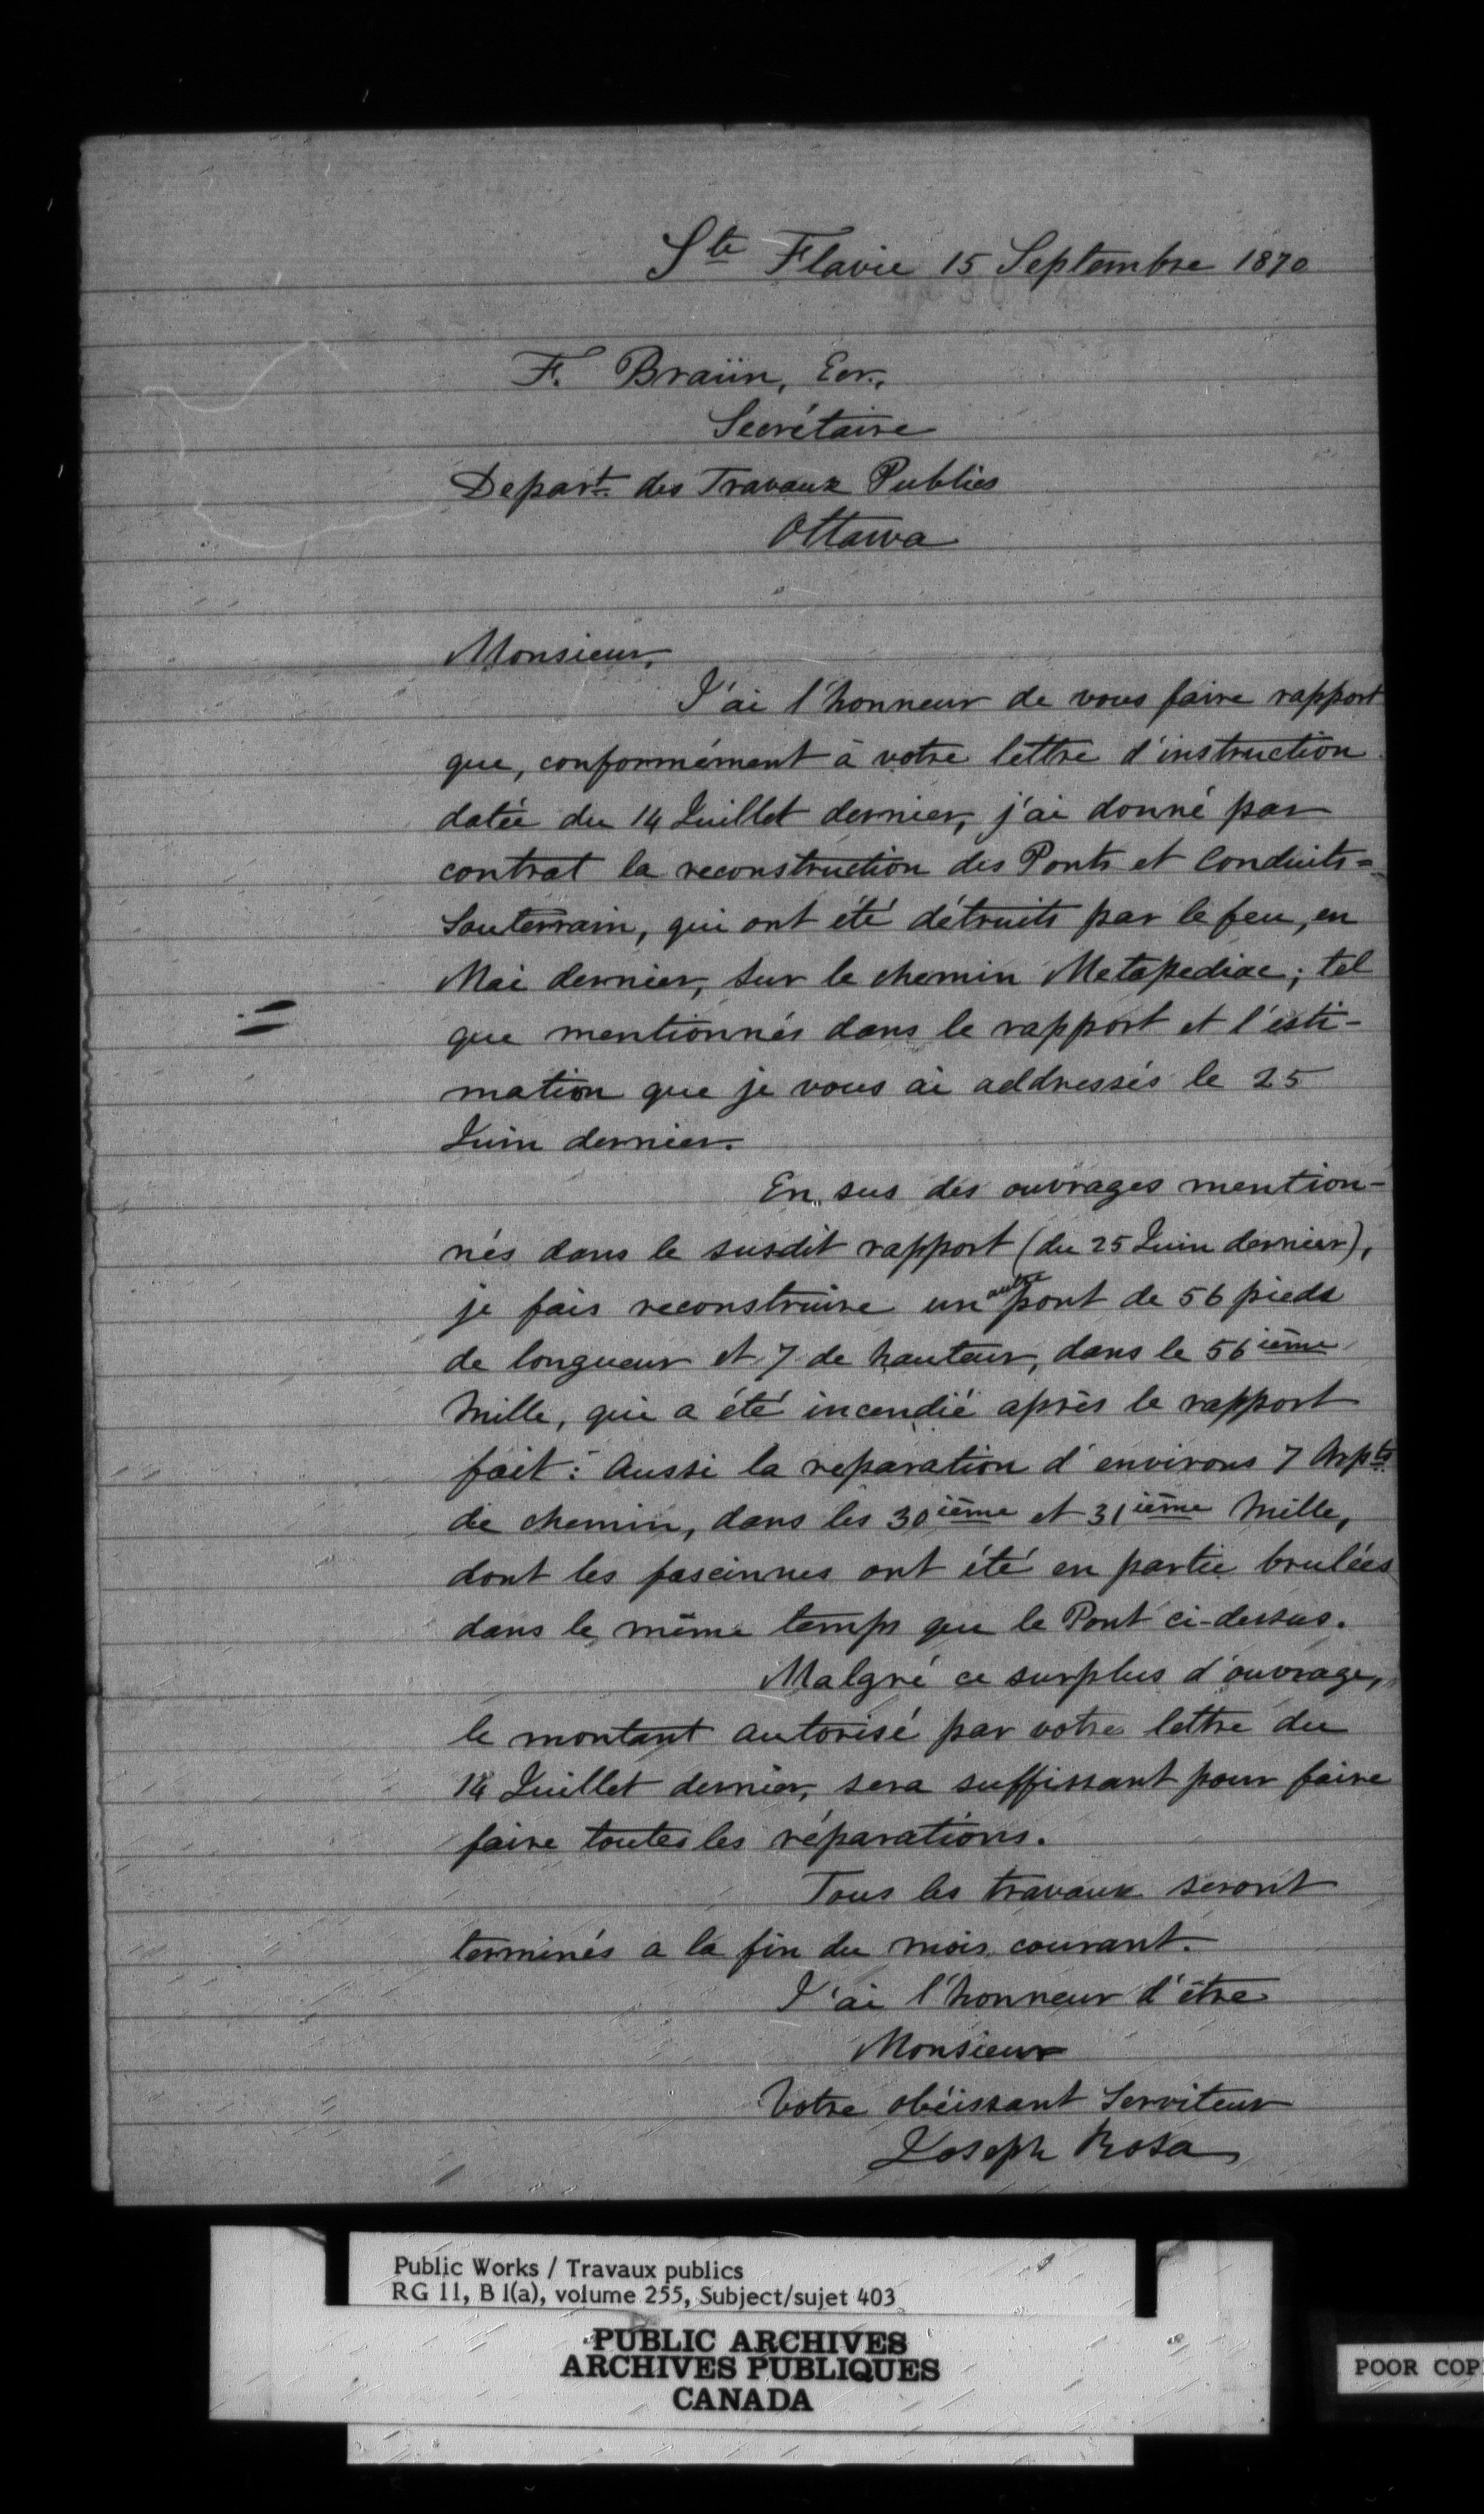 Ste Flavie 15 Septembre 1870
F. Braün, Ecr.,
Secrétaire
Depart. des Travaux Publics
Ottawa
Monsieur,
J'ai l'honneur de vous faire rapport
que, conformément à votre lettre d'instruction
datée du 14 Juillet dernier, j'ai donné par
contrat la reconstruction des Ponts et Conduits=
Souterrain, qui ont été détruits par le feu, en
Mai dernier, sur le chemin Metapediac; tel
que mentionnés dans le rapport et l'esti-
mation que je vous ai addressés le 25
Juin dernier.
En sus des ouvrages mention-
nés dans le susdit rapport (du 25 Juin dernier),
je fais reconstruire un autre pont de 56 pieds
de longueur et 7 de hauteur, dans le 56ième
Mille, qui a été incendié après le rapport
fait: Aussi la reparation d'environs 7 Arpts
de chemin, dans les 30ième et 31ième Mille,
dont les fascinnes ont été en partie brulées
dans le même temps que le Pont ci-dessus.
Malgré ce surplus d'ouvrage,
le montant autorisé par votre lettre du
14 Juillet dernier, sera suffissant pour faire
faire toutes les réparations.
Tous les travaux seront
terminés a la fin du mois courant.
J'ai l'honneur d'être
Monsieur
Votre obéissant Serviteur
Joseph Rosa
Public Works / Travaux publics
RG 11, B 1(a), volume 255, Subject/sujet 403
PUBLIC ARCHIVES
ARCHIVES PUBLIQUES
CANADA
POOR COP